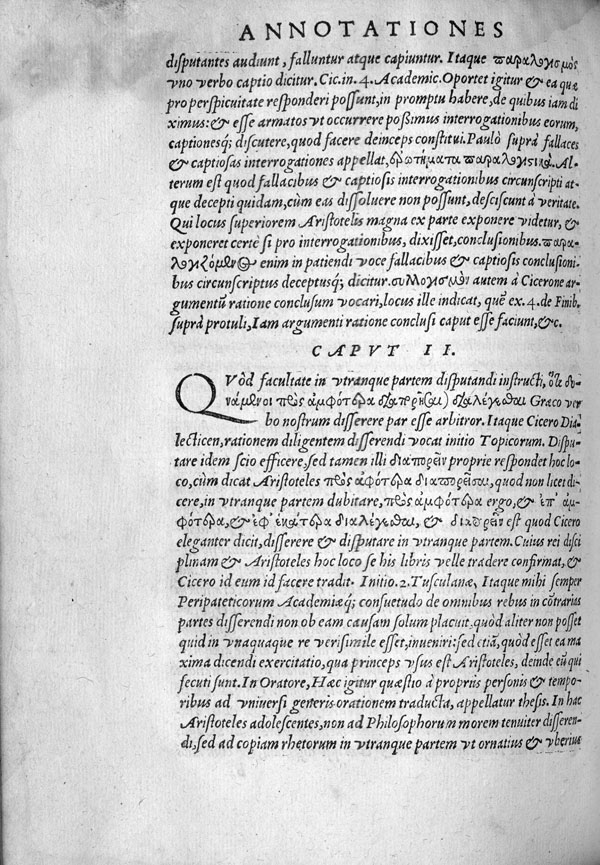 ANNOTATIONES
disputantes audiunt, falluntur atque capiuntur. Itaque παραλογισμὸς
vno verbo captio dicitur. Cic. in. 4. Academic. Oportet igitur & ea quæ
pro perspicuitate responderi possunt, in promptu habere, de quibus iam di
ximus: & esse armatos vt occurrere possimus interrogationibus eorum,
captionesq; discutere, quod facere deinceps constitui. Paulò suprà fallaces
& captiosas interrogationes appellat, ἐρωτήματα παραλογισικὰ. Al-
terum est quod fallacibus & captiosis interrogationibus circunscripti at-
que decepti quidam, cùm eas dissoluere non possunt, desciscunt à veritate.
Qui locus superiorem Aristotelis magna ex parte exponere videtur, &
exponeret certè si pro interrogationibus, dixisset, conclusionibus. παρα-
λογιζόμενος enim in patiendi voce fallacibus & captiosis conclusioni-
bus circunscriptus deceptusq; dicitur. συλλογισμὸν autem à Cicerone ar-
gumentũ ratione conclusum vocari, locus ille indicat, quẽ ex. 4. de Finib.
suprà protuli, Iam argumenti ratione conclusi caput esse faciunt, &c.
CAPVT II.
QVòd facultate in vtranque partem disputandi instructi, ὅτι δυ-
νάμενοι πρὸς ἀμφότερα διαπορῆσαι διαλέγεσθαι Græco ver
bo nostrum disserere par esse arbitror. Itaque Cicero Dia-
lecticen, rationem diligentem disserendi vocat initio Topicorum. Dispu-
tare idem scio efficere, sed tamen illi διαπορεῖν proprie respondet hoc lo-
co, cùm dicat Aristoteles πρὸς ἀφότερα διαπορῆσαι, quod non licei di-
cere, in vtranque partem dubitare, πρὸς ἀμφότερα ergo, & ἐπ' ἀμ-
φότερα, & ἐφ' ἑκάτερα διαλέγεσθαι, & διαπορεῖν est quod Cicero
eleganter dicit, disserere & disputare in vtranque partem. Cuius rei disci
plinam & Aristoteles hoc loco se his libris velle tradere confirmat, &
Cicero id eum id facere tradit. Initio. 2. Tusculanæ, Itaque mihi semper
Peripateticorum Academiæq; consuetudo de omnibus rebus in cõtrarias
partes disserendi non ob eam causam solum placuit, quòd aliter non posset
quid in vnaquaque re verisimile esset, inueniri: sed etiã, quòd esset ea ma
xima dicendi exercitatio, qua princeps vsus est Aristoteles, deinde eũ qui
secuti sunt. In Oratore, Hæc igitur quæstio à propriis personis & tempo-
ribus ad vniuersi generis orationem traducta, appellatur thesis. In hac
Aristoteles adolescentes, non ad Philosophorum morem tenuiter disseren-
di, sed ad copiam rhetorum in vtranque partem vt ornatius & vberius